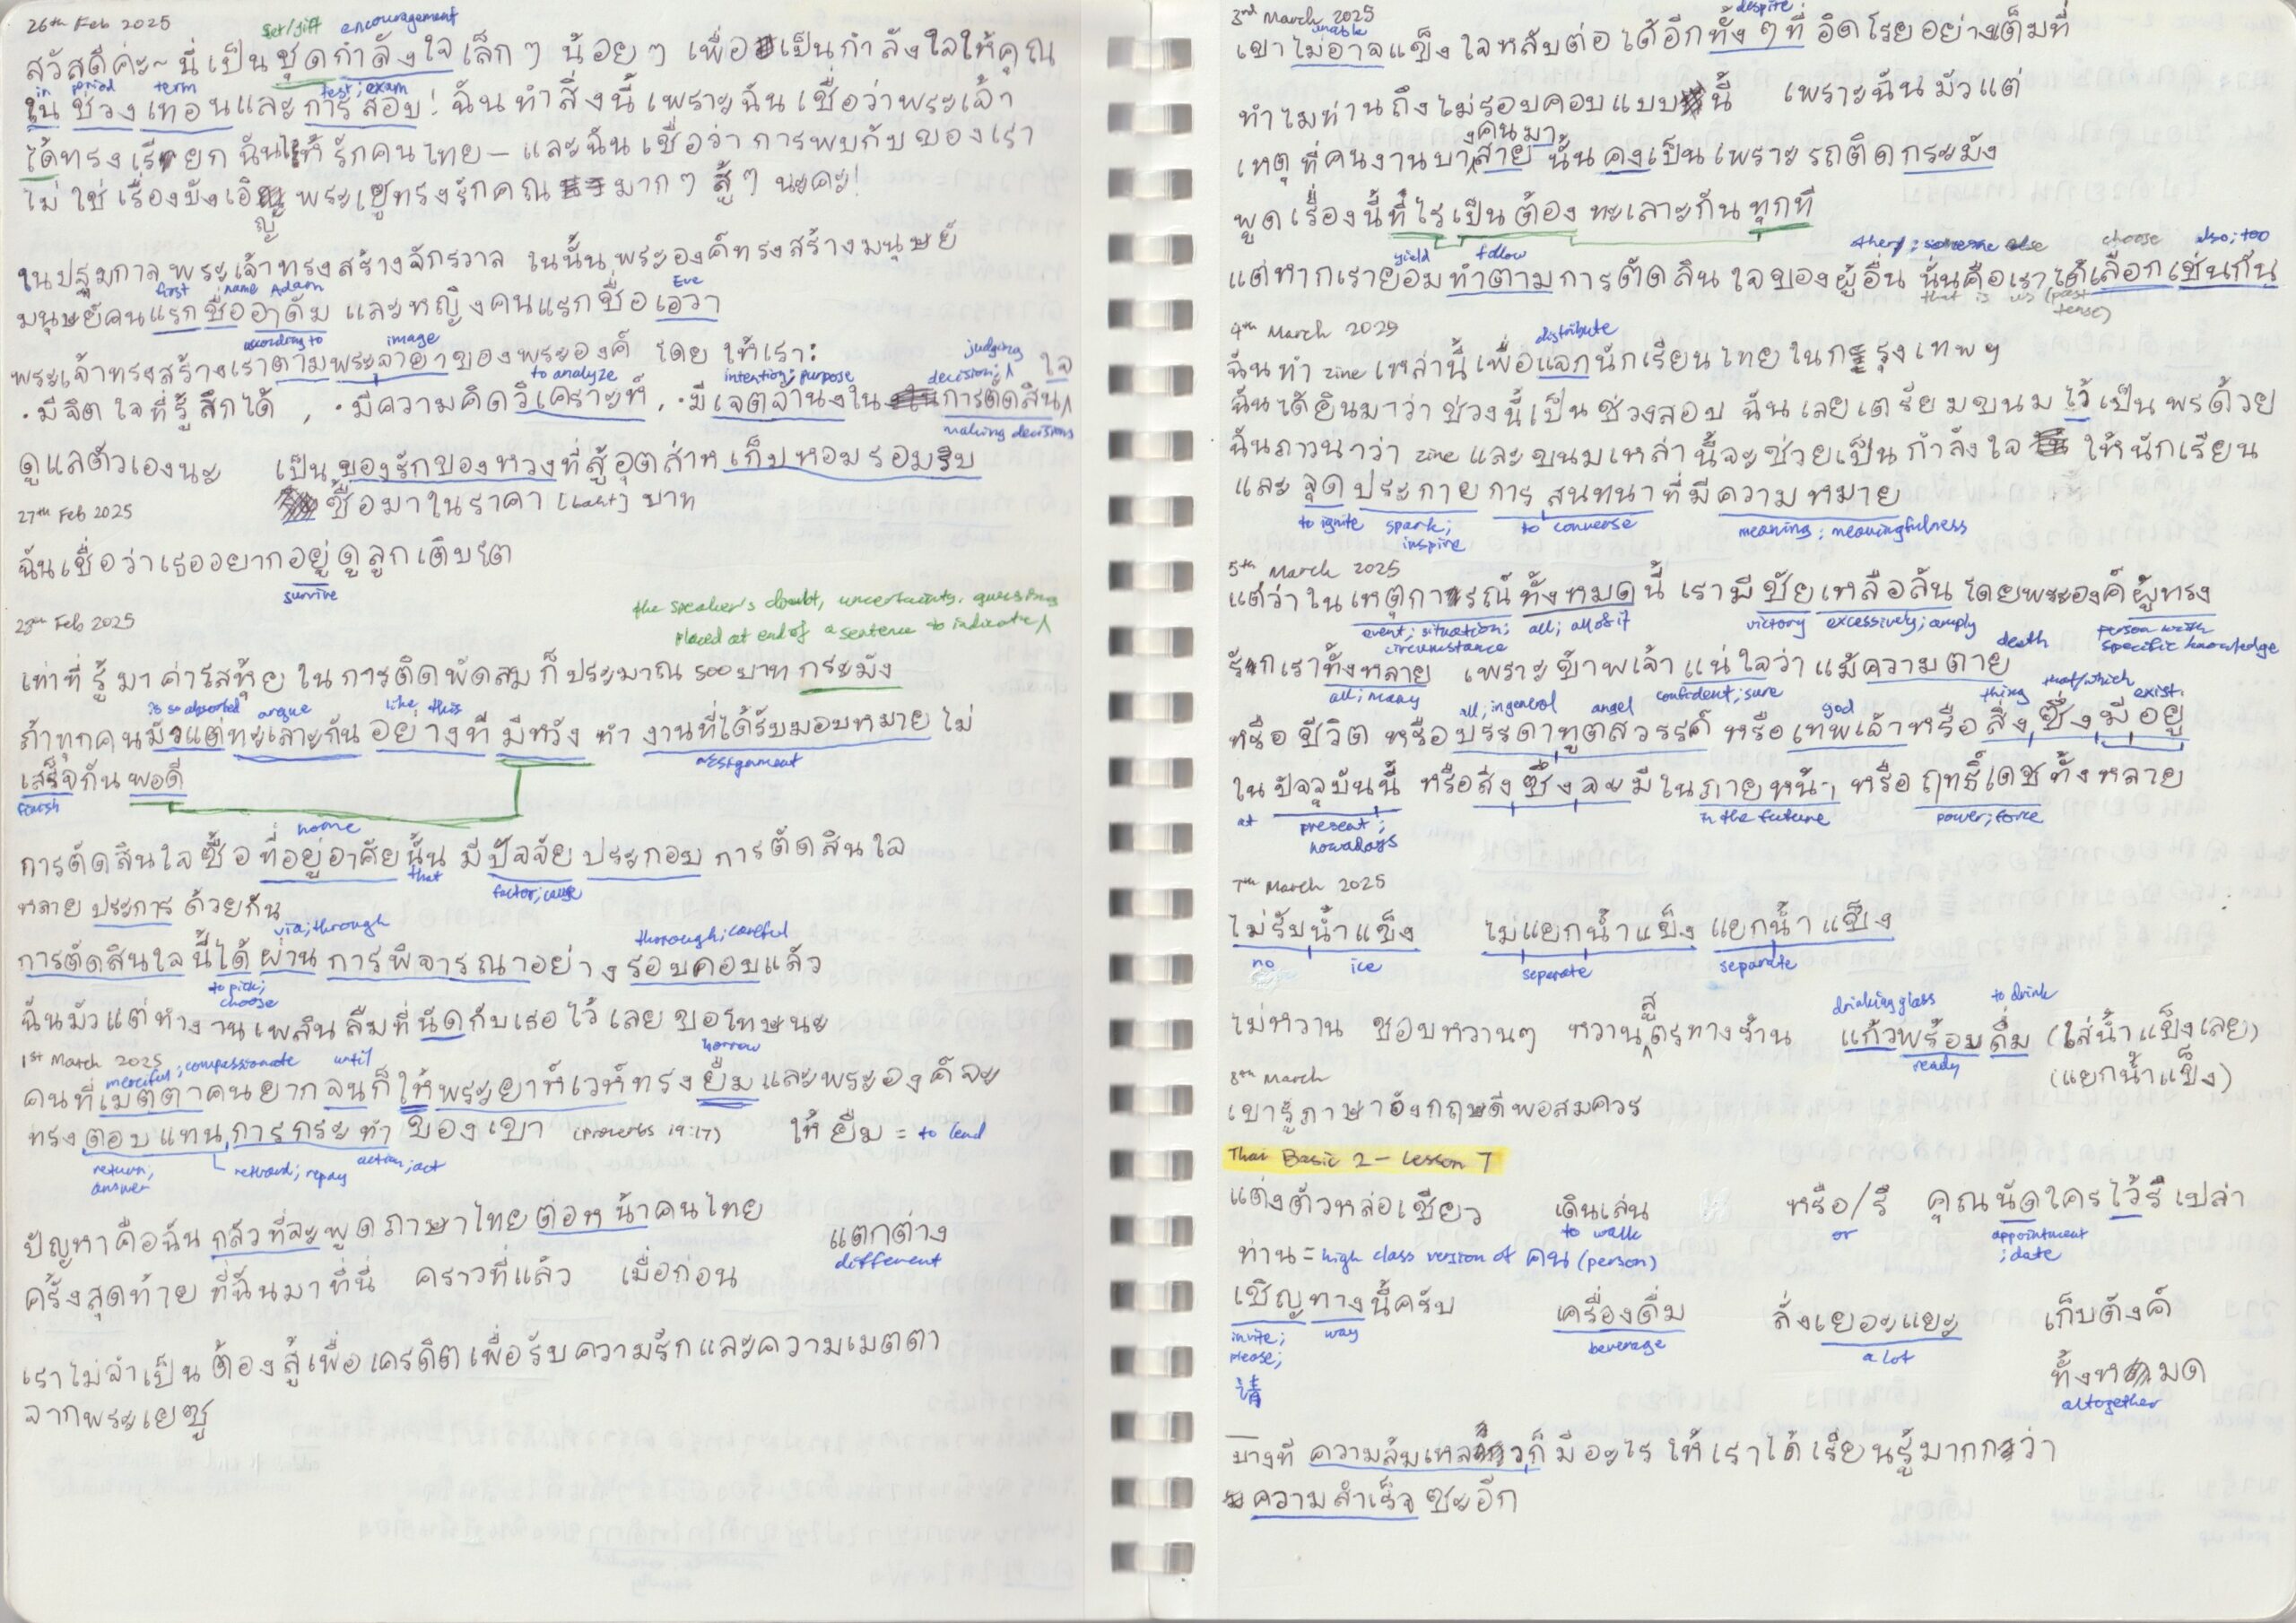 26th Feb 2025
set/gift encouragement
สวัสดีค่ะ~ นี่เป็นชุดกำลังใจเล็กๆ น้อยๆ เพื่อเป็นกำลังใจให้คุณ
in period term test; exam
ในช่วงเทอมและการสอบ! ฉันทำสิ่งนี้เพราะฉันเชื่อว่าพระเจ้า
ได้ทรงเรียกฉันให้รักคนไทย — และฉันเชื่อว่าการพบกับของเรา
ไม่ใช่เรื่องบังเอิญ พระเยซูทรงรักคุณมากๆ สู้ๆ นะคะ!
ในปฐมกาล พระเจ้าทรงสร้างจักรวาล ในนั้นพระองค์ทรงสร้างมนุษย์
first name Adam Eve
มนุษย์คนแรกชื่ออาดัม และหญิงคนแรกชื่อเอวา
according to image
พระเจ้าทรงสร้างเราตามพระฉายาของพระองค์ โดยให้เรา:
to analyze intention; purpose decision; judging
· มีจิตใจที่รู้สึกได้ , · มีความคิดวิเคราะห์, · มีเจตจำนงในการตัดสินใจ
making decisions
ดูแลตัวเองนะ เป็นของรักของหวงที่สู้อุตส่าหเก็บหอมรอมริบ
ซื้อมาในราคา (baht) บาท
27th Feb 2025
ฉันเชื่อว่าเธออยากอยู่ดูลูกเติบโต
survive
28th Feb 2025
the speaker's doubt, uncertainty, guessing
placed at end of a sentence to indicate
เท่าที่รู้มาค่าโสหุ้ยในการติดพัดลมก็ประมาณ 500 บาทกระมัง
is so absorbed argue like this
ถ้าทุกคนมัวแต่ทะเลาะกันอย่างที มีหวังทำงานที่ได้รับมอบหมายไม่
assignment
เสร็จกันพอดี
finish
home
การตัดสินใจซื้อที่อยู่อาศัยนั้น มีปัจจัยประกอบการตัดสินใจ
that factor; cause
หลายประการด้วยกัน
via; through thorough; careful
การตัดสินใจนี้ได้ผ่านการพิจารณาอย่างรอบคอบแล้ว
to pick; choose
ฉันมัวแต่ทำงานเพลินลืมที่นัดกับเธอไว้เลย ขอโทษนะ
1st March 2025
merciful; compassionate until borrow
คนที่เมตตาคนยากจนก็ให้พระยาห์เวห์ทรงยืมและพระองค์จะ
ทรงตอบแทนการกระทำของเขา (Proverbs 19:17) ให้ยืม = to lend
return; answer reward; repay action; act
ปัญหาคือฉันกลัวที่จะพูดภาษาไทยต่อหน้าคนไทย แตกต่าง
different
ครั้งสุดท้ายที่ฉันมาที่นี่ คราวที่แล้ว เมื่อก่อน
เราไม่จำเป็นต้องสู้เพื่อเครดิตเพื่อรับความรักและความเมตตา
จากพระเยซู
3rd March 2025
unable despite
เขาไม่อาจแข็งใจหลับต่อได้อีกทั้งๆที่อิดโรยอย่างเต็มที่
ทำไมท่านถึงไม่รอบคอบแบบนี้ เพราะฉันมัวแต่
เหตุที่คนงานบางคนมาสายนั้นคงเป็นเพราะรถติดกระมัง
พูดเรื่องนี้ทีไรเป็นต้องทะเลาะกันทุกที
yield follow other; someone else choose also; too
แต่หากเรายอมทำตามการตัดสินใจของผู้อื่น นั่นคือเราได้เลือกเช่นกัน
that is us (past tense)
4th March 2029
distribute
ฉันทำ zine เหล่านี้เพื่อแจกนักเรียนไทยในกรุงเทพฯ
ฉันได้ยินมาว่าช่วงนี้เป็นช่วงสอบ ฉันเลยเตรียมขนมไว้เป็นพรด้วย
ฉันภาวนาว่า zine และขนมเหล่านี้จะช่วยเป็นกำลังใจให้นักเรียน
และจุดประกายการสนทนาที่มีความหมาย
to ignite spark; inspire to converse meaning; meaningfulness
5th March 2025
แต่ว่าในเหตุการณ์ทั้งหมดนี้ เรามีชัยเหลือล้นโดยพระองค์ผู้ทรง
event; situation; circumstance all; all of it victory excessively; amply person with specific knowledge
death
รักเราทั้งหลาย เพราะข้าพเจ้าแน่ใจว่าแม้ความตาย
all; many confident; sure
all; in general angel god thing that/which exist
หรือชีวิต หรือบรรดาทูตสวรรค์ หรือเทพเจ้าหรือสิ่งซึ่งมีอยู่
ในปัจจุบันนี้ หรือสิ่งซึ่งจะมีในภายหน้า หรือฤทธิ์เดชทั้งหลาย
at present; nowadays in the future power; force
7th March 2025
ไม่รับน้ำแข็ง ไม่แยกน้ำแข็ง แยกน้ำแข็ง
no ice separate separate
drinking glass to drink
ไม่หวาน ชอบหวานๆ หวานสูตรทางร้าน แก้วพร้อมดื่ม (ใส่น้ำแข็งเลย)
ready
(แยกน้ำแข็ง)
8th March
เขารู้ภาษาอังกฤษดีพอสมควร
Thai Basic 2 — Lesson 7
แต่งตัวหล่อเชียว เดินเล่น หรือ/รึ คุณนัดใครไว้รึเปล่า
to walk or appointment; date
ท่าน = high class version of คน (person)
เชิญทางนี้ครับ เครื่องดื่ม สั่งเยอะแยะ เก็บตังค์
invite; please; 请 way beverage a lot
ทั้งหมด
altogether
บางที ความล้มเหลวก็มีอะไรให้เราได้เรียนรู้มากกว่า
ความสำเร็จซะอีก